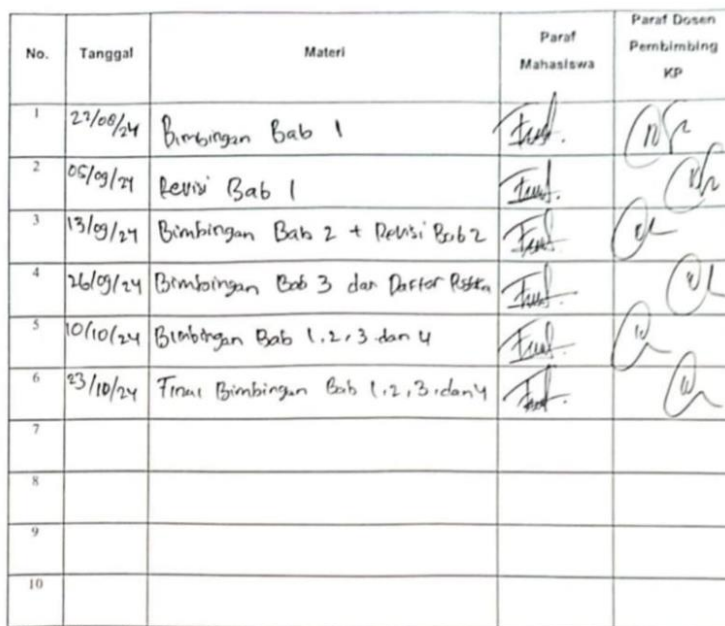 No. Tanggal Materi Paraf Mahasiswa Paraf Dosen Pembimbing KP
1 /08/24 Bimbingan Bab 1
2 05/09/24 Revisi Bab 1
3 13/09/24 Bimbingan Bab 2 + Revisi Bab 2
4 26/09/24 Bimbingan Bab 3 dan Daftar
5 10/10/24 Bimbingan Bab 1, 2, 3 dan 4
6 23/10/24 Final Bimbingan Bab 1, 2, 3, dan 4
7
8
9
10